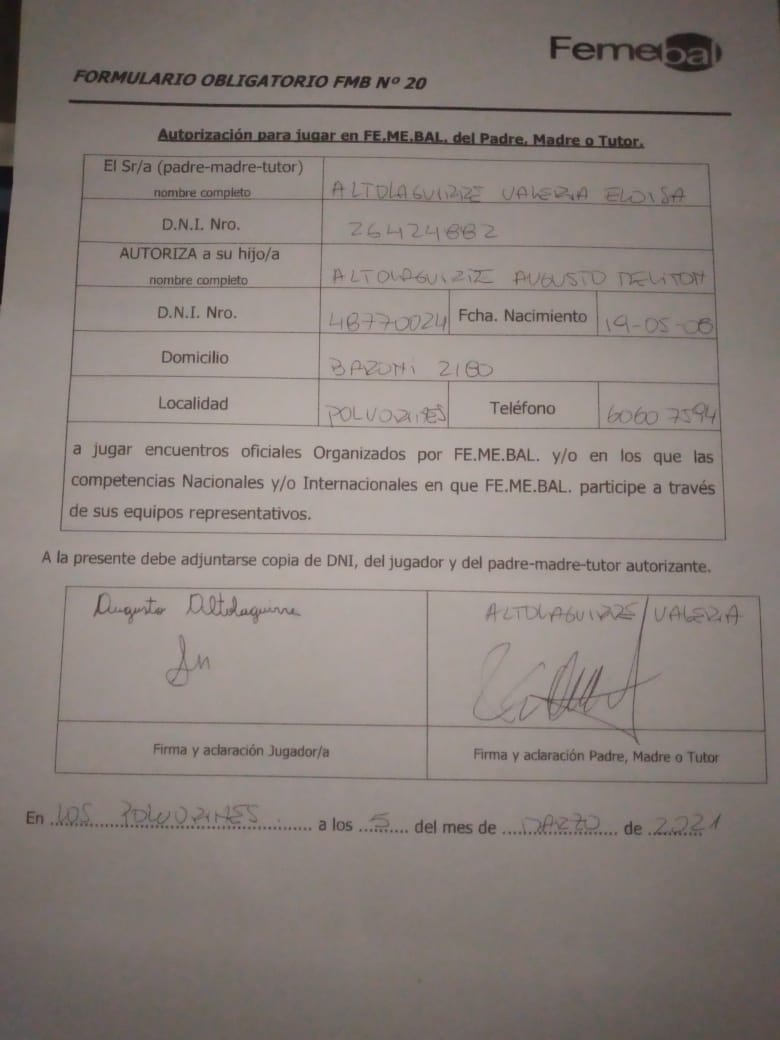 Femebal
FORMULARIO OBLIGATORIO FMB Nº 20
Autorización para jugar en FE.ME.BAL. del Padre, Madre o Tutor.
El Sr/a (padre-madre-tutor)
nombre completo
ALTOLAGUIRRE VALERIA ELOISA
D.N.I. Nro.
26424882
AUTORIZA a su hijo/a
nombre completo
ALTOLAGUIRRE AUGUSTO
D.N.I. Nro.
48770024
Fcha. Nacimiento
19-05-08
Domicilio
BAZONI 2180
Localidad
POLVORINES
Teléfono
6060 7594
a jugar encuentros oficiales Organizados por FE.ME.BAL. y/o en los que las
competencias Nacionales y/o Internacionales en que FE.ME.BAL. participe a través
de sus equipos representativos.
A la presente debe adjuntarse copia de DNI, del jugador y del padre-madre-tutor autorizante.
Augusto Altolaguirre
ALTOLAGUIRRE / VALERIA
Firma y aclaración Jugador/a
Firma y aclaración Padre, Madre o Tutor
En LOS POLVORINES a los 5 del mes de MARZO de 2021